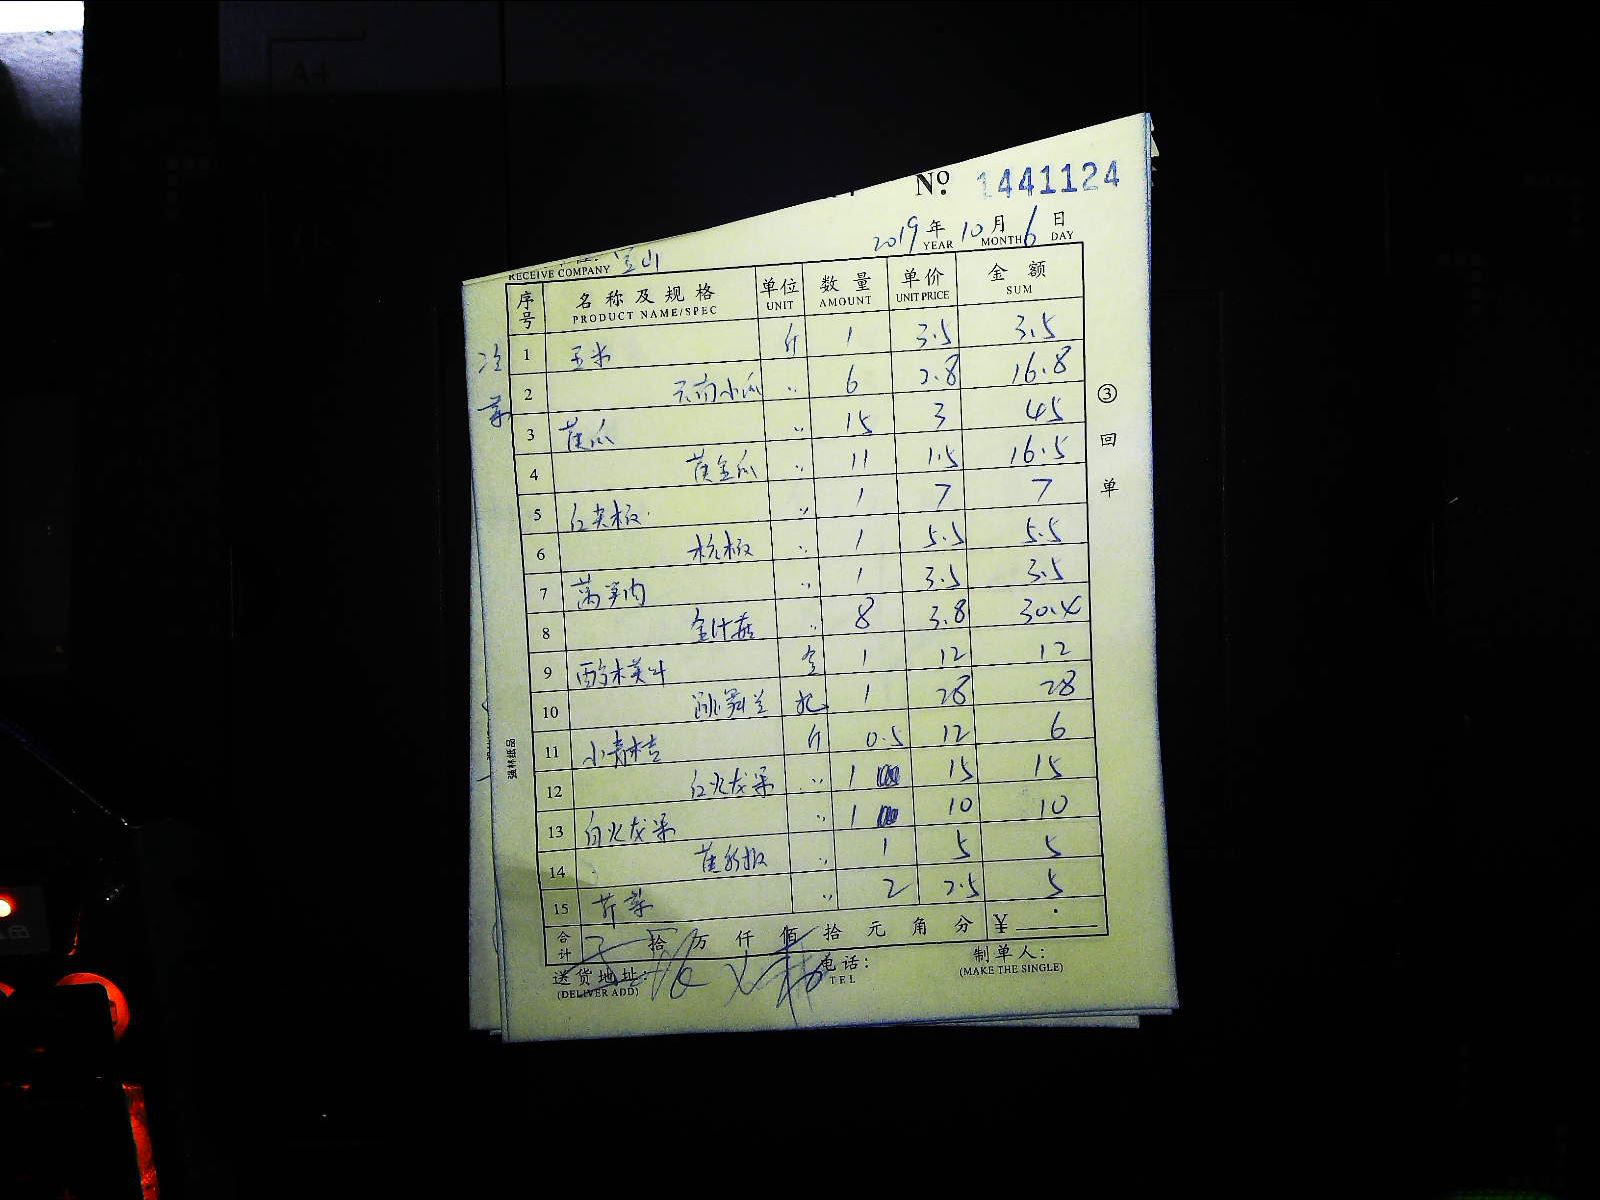 A4
No. 1441124
2019年 10月 6日
YEAR MONTH DAY
RECEIVE COMPANY 宝山
序号 名称及规格 单位 数量 单价 金额
PRODUCT NAME/SPEC UNIT AMOUNT UNIT PRICE SUM
冷菜
1 玉米 斤 1 3.5 3.5
2 〃 6 2.8 16.8
3 黄瓜 〃 15 3 45
4 黄金瓜 〃 11 1.5 16.5
5 红尖椒 〃 1 7 7
6 杭椒 〃 1 5.5 5.5
7 莴笋肉 〃 1 3.5 3.5
8 金针菇 〃 8 3.8 30.4
9 盒 1 12 12
10 跳舞兰 把 1 28 28
11 小青桔 斤 0.5 12 6
12 红火龙果 〃 1 15 15
13 白火龙果 〃 1 10 10
14 黄彩椒 〃 1 5 5
15 芹菜 〃 2 2.5 5
合计 拾 万 仟 佰 拾 元 角 分 ¥
送货地址: 电话: 制单人:
(DELIVER ADD) TEL (MAKE THE SINGLE)
③回单
强林纸品